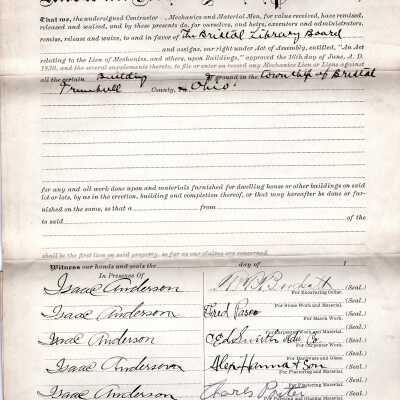 That we, the undersigned Contractor, Mechanics and Material Men, for value received, have remised,
released and waived, and by these presents do, for ourselves, and heirs, executors and administrators,
remise, release and waive, to and in favor of The Bristol Library Board
and assigns, our right under Act of Assembly, entitled, "An Act
relating to the Lien of Mechanics, and others, upon Buildings," approved the 16th day of June, A. D.
1836, and the several supplements thereto, to file or enter on record any Mechanics Lien or Liens against
all the certain Building & ground in the township of Bristol
Trumbull County, Ohio.
for any and all work done upon and materials furnished for dwelling house or other buildings on said
lot or lots, by us in the erection, building and completion thereof, or that may hereafter be done or fur-
nished on the same, so that a from
to said of the
shall be the first lien on said property, so far as our claims are concerned.
Witness our hands and seals the day of 1
In Presence Of
Isaac Anderson (Seal.)
For Excavating Cellar.
Isaac Anderson Fred Paseo (Seal.)
For Stone Work and Material.
Isaac Anderson (Seal.)
For Carpenter Work.
Isaac Anderson Alex Hanna & Son (Seal.)
For Plastering and Material.
Isaac Anderson Charles (Seal.)